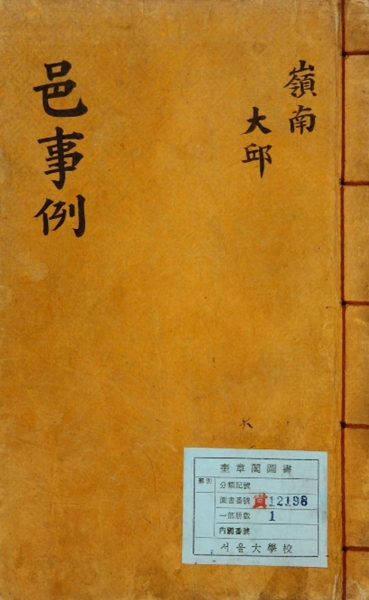 嶺南
大邱
邑事例
奎章閣圖書
分類記號
圖書番號 12198
一部冊數 1
內閣番號
서울大學校